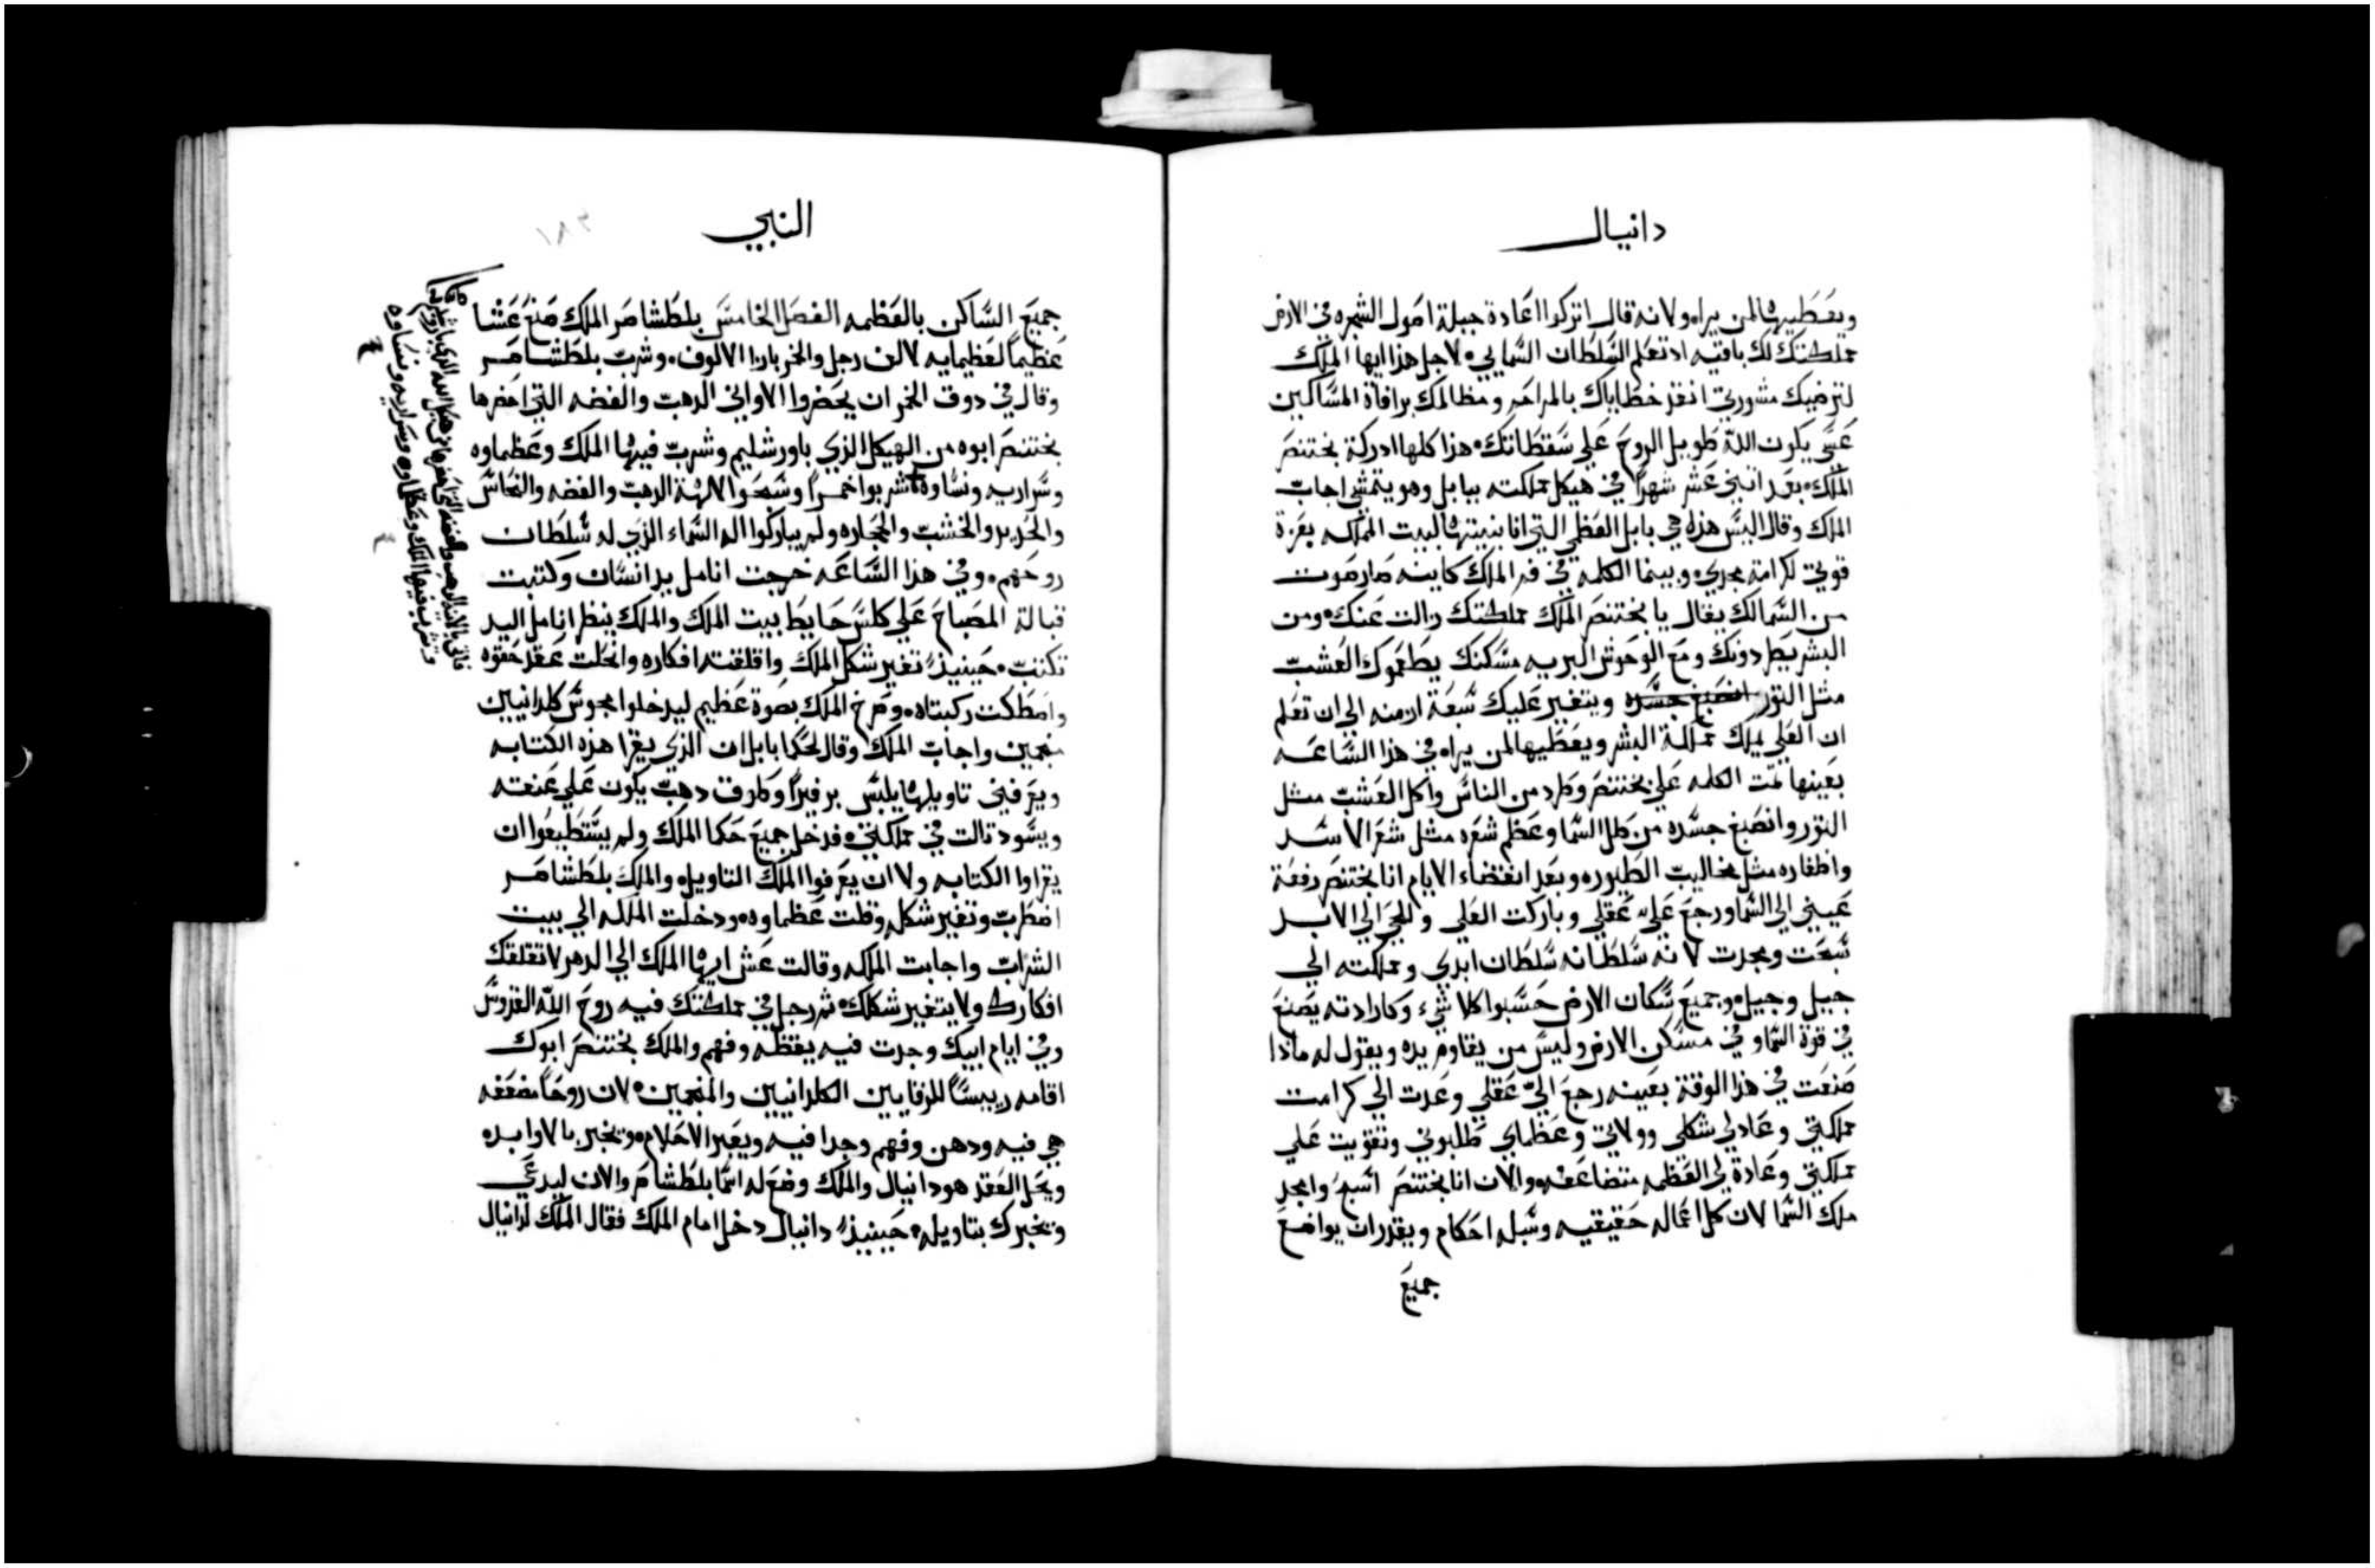 دانيال
ويعطيها لمن يراه ولانه قال اتركوا اعادة جبلة اصول الشجره في الارض
مملكتك لك باقيه اد تعلم السلطان السمايي لاجل هذا ايها الملك
لترضيك مشورتي انقذ خطاياك بالمراحم ومظالمك برافاة المساكين
عسى يكون الله طويل الروح علي سقطاتك هذا كلها ادركة بختنصر
الملك بعد اثني عشر شهرا في هيكل مملكته ببابل وهو يتمشي اجاب
الملك وقال اليس هذه هي بابل العظمي التي انا بنيتها لبيت المملكه بعزة
قوتي لكرامة مجدي وبينما الكلمة في فم الملك كاينه صار صوت
من السما لك يقال يا بختنصر الملك مملكتك زالت عنك ومن
البشر يطردونك ومع الوحوش البريه مسكنك يطعموك العشب
مثل التور انصبغ جسده ويتغير عليك سبعة ازمنه الي ان تعلم
ان العلي يملك مملكة البشر ويعطيها لمن يراه في هذا الساعه
بعينها تمت الكلمه علي بختنصر وطرد من الناس واكل العشب مثل
التور وانصبغ جسده من طل السما وعظم شعره مثل شعر الاسد
واظفاره مثل مخاليب الطيور وبعد انقضاء الايام انا بختنصر رفعة
عيني الي السما ورجع علي عقلي وباركت العلي وللحي الي الابد
سبحت ومجدت لانه سلطانه سلطان ابدي ومملكته الي
جيل وجيل وجميع سكان الارض حسبوا كلا شيء وكارادته يصنع
في قوة السما وفي مسكن الارض وليس من يقاوم يده ويقول له ماذا
صنعت في هذا الوقت بعينه رجع الي عقلي وعدت الي كرامت
مملكتي وعاد لي شكلي وولاتي وعظماي طلبوني وتقويت علي
مملكتي وعادة لي العظمه متضاعفه والان انا بختنصر اسبح وامجد
ملك السما لان كل اعماله حقيقيه وسبله احكام ويقدر ان يواضع
جميع
النبي
٣٨١
جميع الساكن بالعظمه الفصل الخامس بلطشاصر الملك صنع عشا
عظيما لعظمايه لالف رجل والخمر بازا الالوف وشرب بلطشاصر
وقال في دوق الخمر ان يحضروا الاواني الدهب والفضه التي احضرها
بختنصر ابوه من الهيكل الذي باورشليم وشرب فيها الملك وعظماوه
وسراريه ونساوه شربوا خمرا وسبحوا لالهة الدهب والفضه والنحاس
والحديد والخشب والحجاره ولم يباركوا اله السماء الذي له سلطان
روحهم وفي هذا الساعه خرجت انامل يد انسان وكتبت
قبالة المصباح علي كلس حايط بيت الملك والملك ينظر انامل اليد
تكتب حينيذ تغير شكل الملك واقلقته افكاره وانحلت عقد حقوه
واصطكت ركبتاه وصرخ الملك بصوة عظيم ليدخلوا مجوس كلدانيين
منجمين واجاب الملك وقال لحكما بابل ان الذي يقرا هذه الكتابه
ويعرفني تاويلها يلبس برفيرا وطوق دهب يكون علي عنقه
ويسود تالت في مملكتي فدخل جميع حكما الملك ولم يستطيعوا ان
يقراوا الكتابه ولا ان يعرفوا الملك التاويل والملك بلطشاصر
اضطرب وتغير شكله وقلت عظماوه ودخلت الملكه الي بيت
الشراب واجابت الملكه وقالت عش ايها الملك الي الدهر لا تقلقك
افكارك ولا يتغير شكلك ثم رجل في مملكتك فيه روح الله القدوس
وفي ايام ابيك وجدت فيه يقظه وفهم والملك بختنصر ابوك
اقامه رييسا للرقايين الكلدانيين والمنجمين لان روحا مضعفه
هي فيه ودهن وفهم وجدا فيه ويعبر الاحلام ويخبر بالاوابده
ويحل العقد هو دانيال والملك وضع له اسما بلطشاصر والان ليدعي
ويخبرك بتاويله حينيذ دانيال دخل امام الملك فقال الملك لدانيال
فاتي بالانية الدهب والفضه التي احضرها من هيكل الله الذي باورشليم
وشرب فيها الملك وعظماوه وسراريه ونساوه